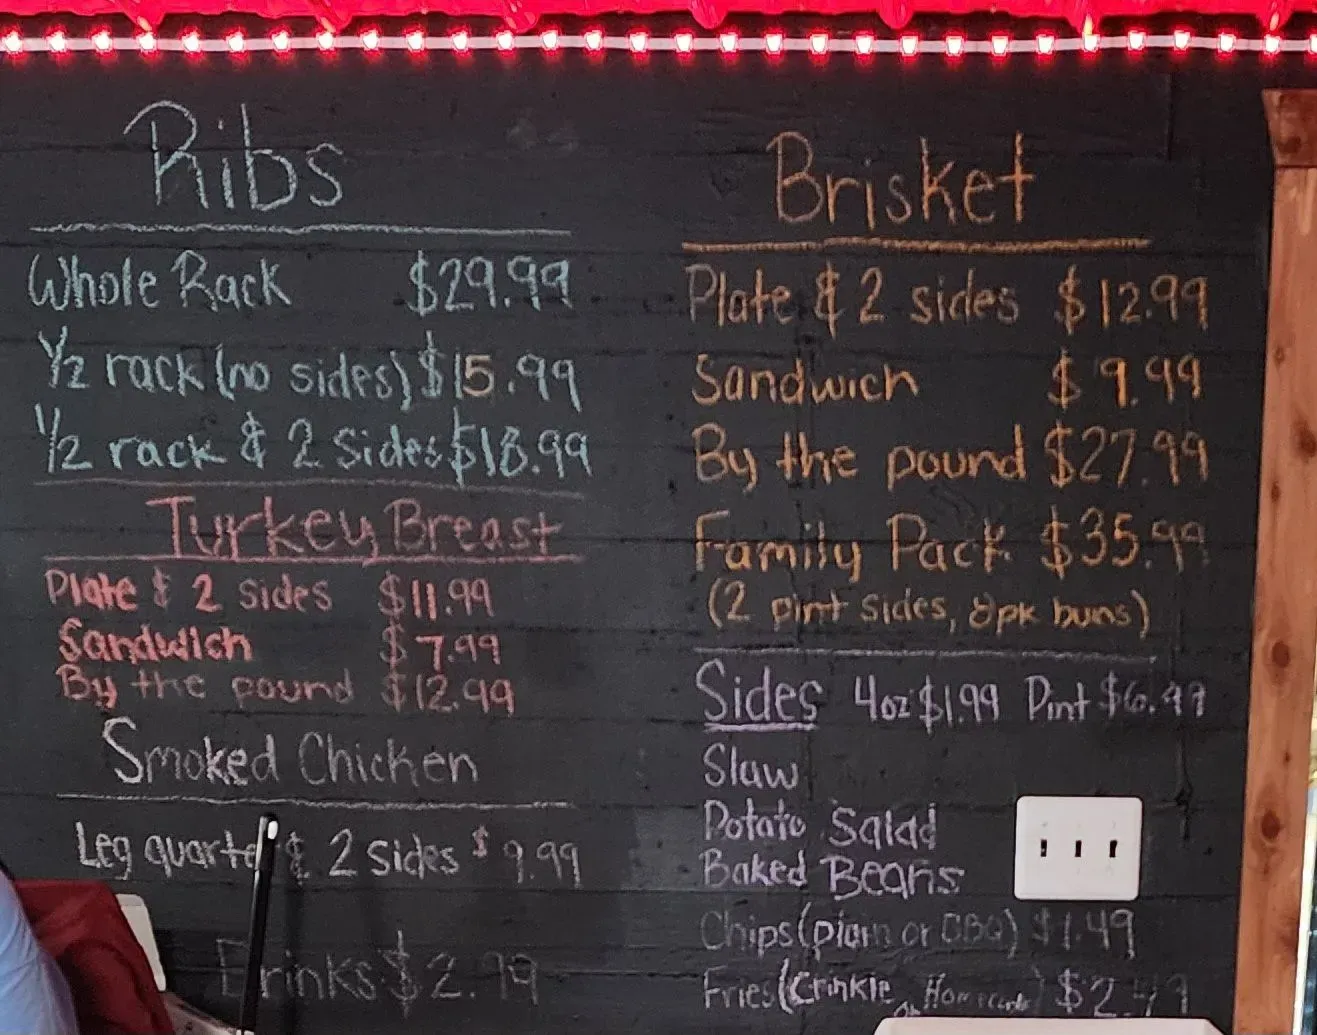 Ribs
Whole Rack $29.99
1/2 rack (no sides) $15.99
1/2 rack & 2 Sides $18.99
Turkey Breast
Plate & 2 sides $11.99
Sandwich $7.99
By the pound $12.99
Smoked Chicken
Leg quarter & 2 sides $9.99
Drinks $2.
Brisket
Plate & 2 sides $12.99
Sandwich $9.99
By the pound $27.99
Family Pack $35.99
(2 pint sides, 8pk buns)
Sides 4oz $1.99 Pint $6.99
Slaw
Potato Salad
Baked Beans
Chips (plain or BBQ) $1.49
Fries (Crinkle or Homemade) $2.49